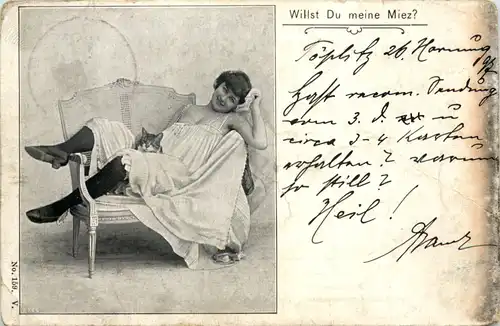 Willst Du meine Miez?
Töplitz 26. Hornung
Hast recom. Sendung
vom 3. d. u
circa 3-4 Karten
erhalten? warum
so still?
Heil!
No. 150. V.